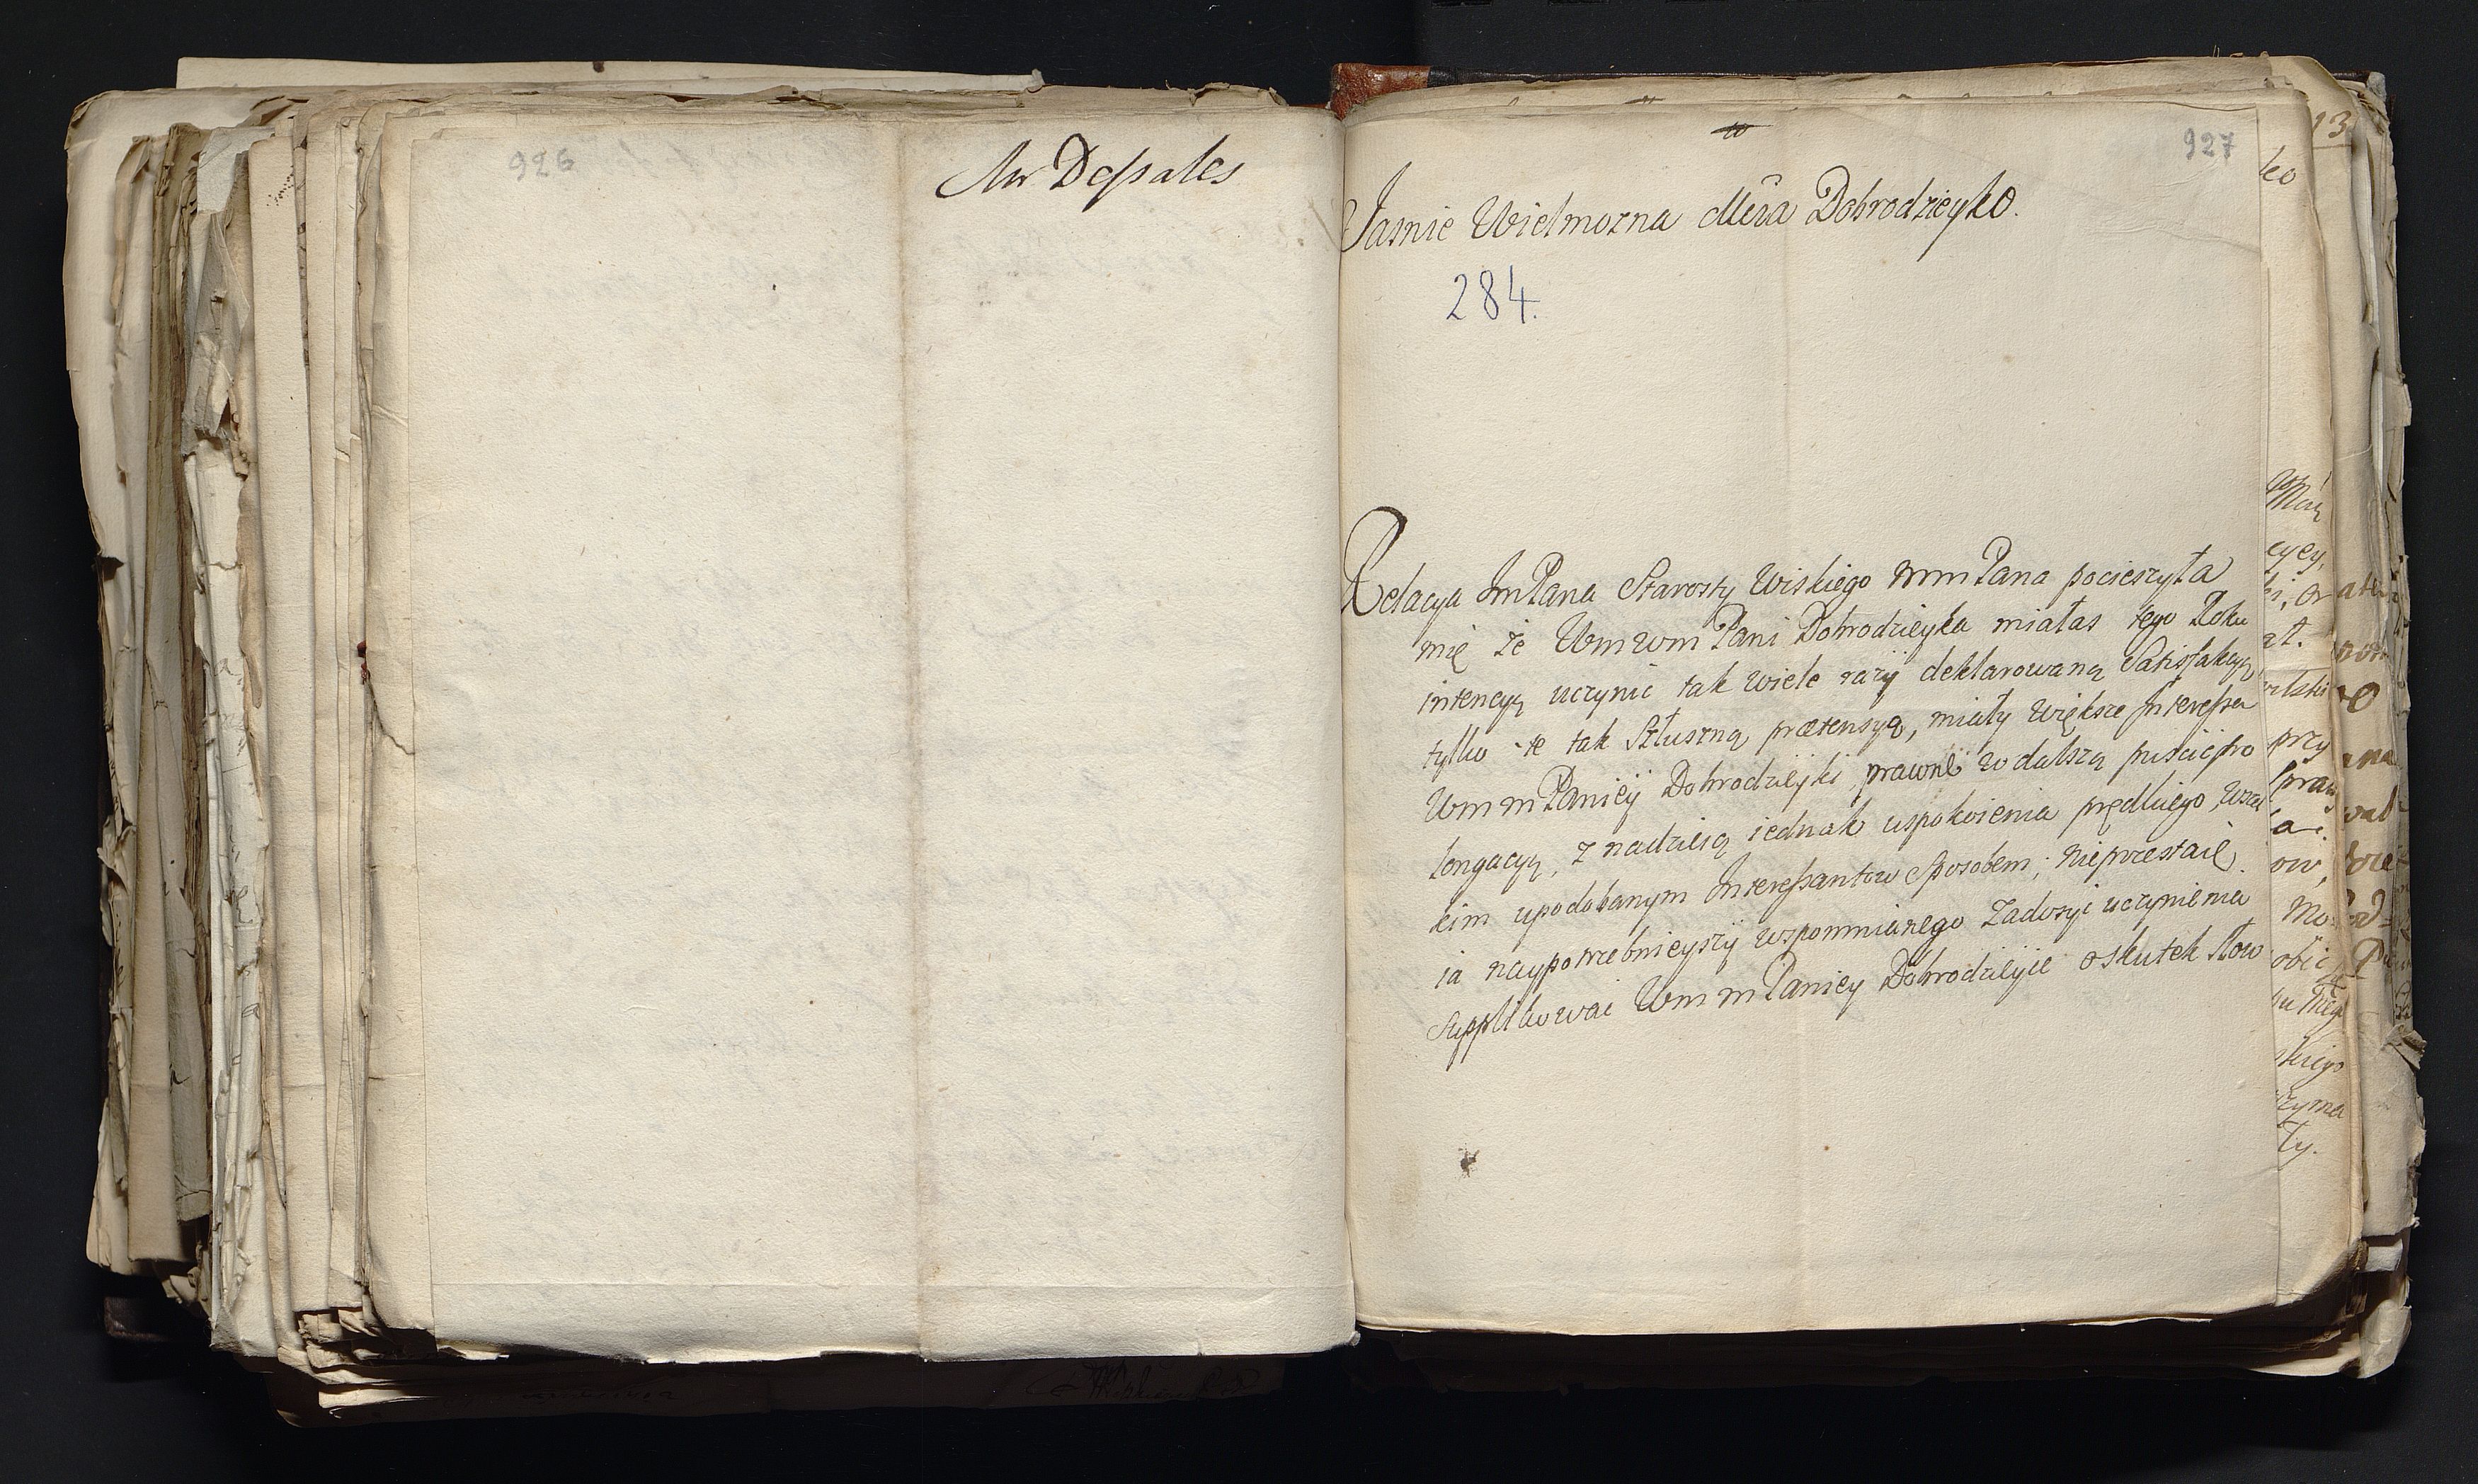 926
Mr Dessales
927
Jasnie Wielmozna Mcia Dobrodzieyko.
284.
Relacya JmPana Starosty Wiskiego mmPana pocieszyła
mię że WmwmPani Dobrodzieyka miałas tego Roku
intencyą uczynic tak wiele razy deklarowaną Satisfakcyą
tylko że tak Słuszną prætensyą, miały większe Interessa
WmmPaniey Dobrodzieyki prawne w dalszą puscic pro
longacyą, z nadzieią iednak uspokoienia prędkiego wszel
kim upodobanym Interessantow Sposobem; nieprzestaię
ia naypotrzebnieyszy wspomnianego Zadosyc uczynienia
supplikowac WmmPaniey Dobrodzieyce o skutek słow
13
ko
cyey,
at.
przy
ow,
obic
ty.